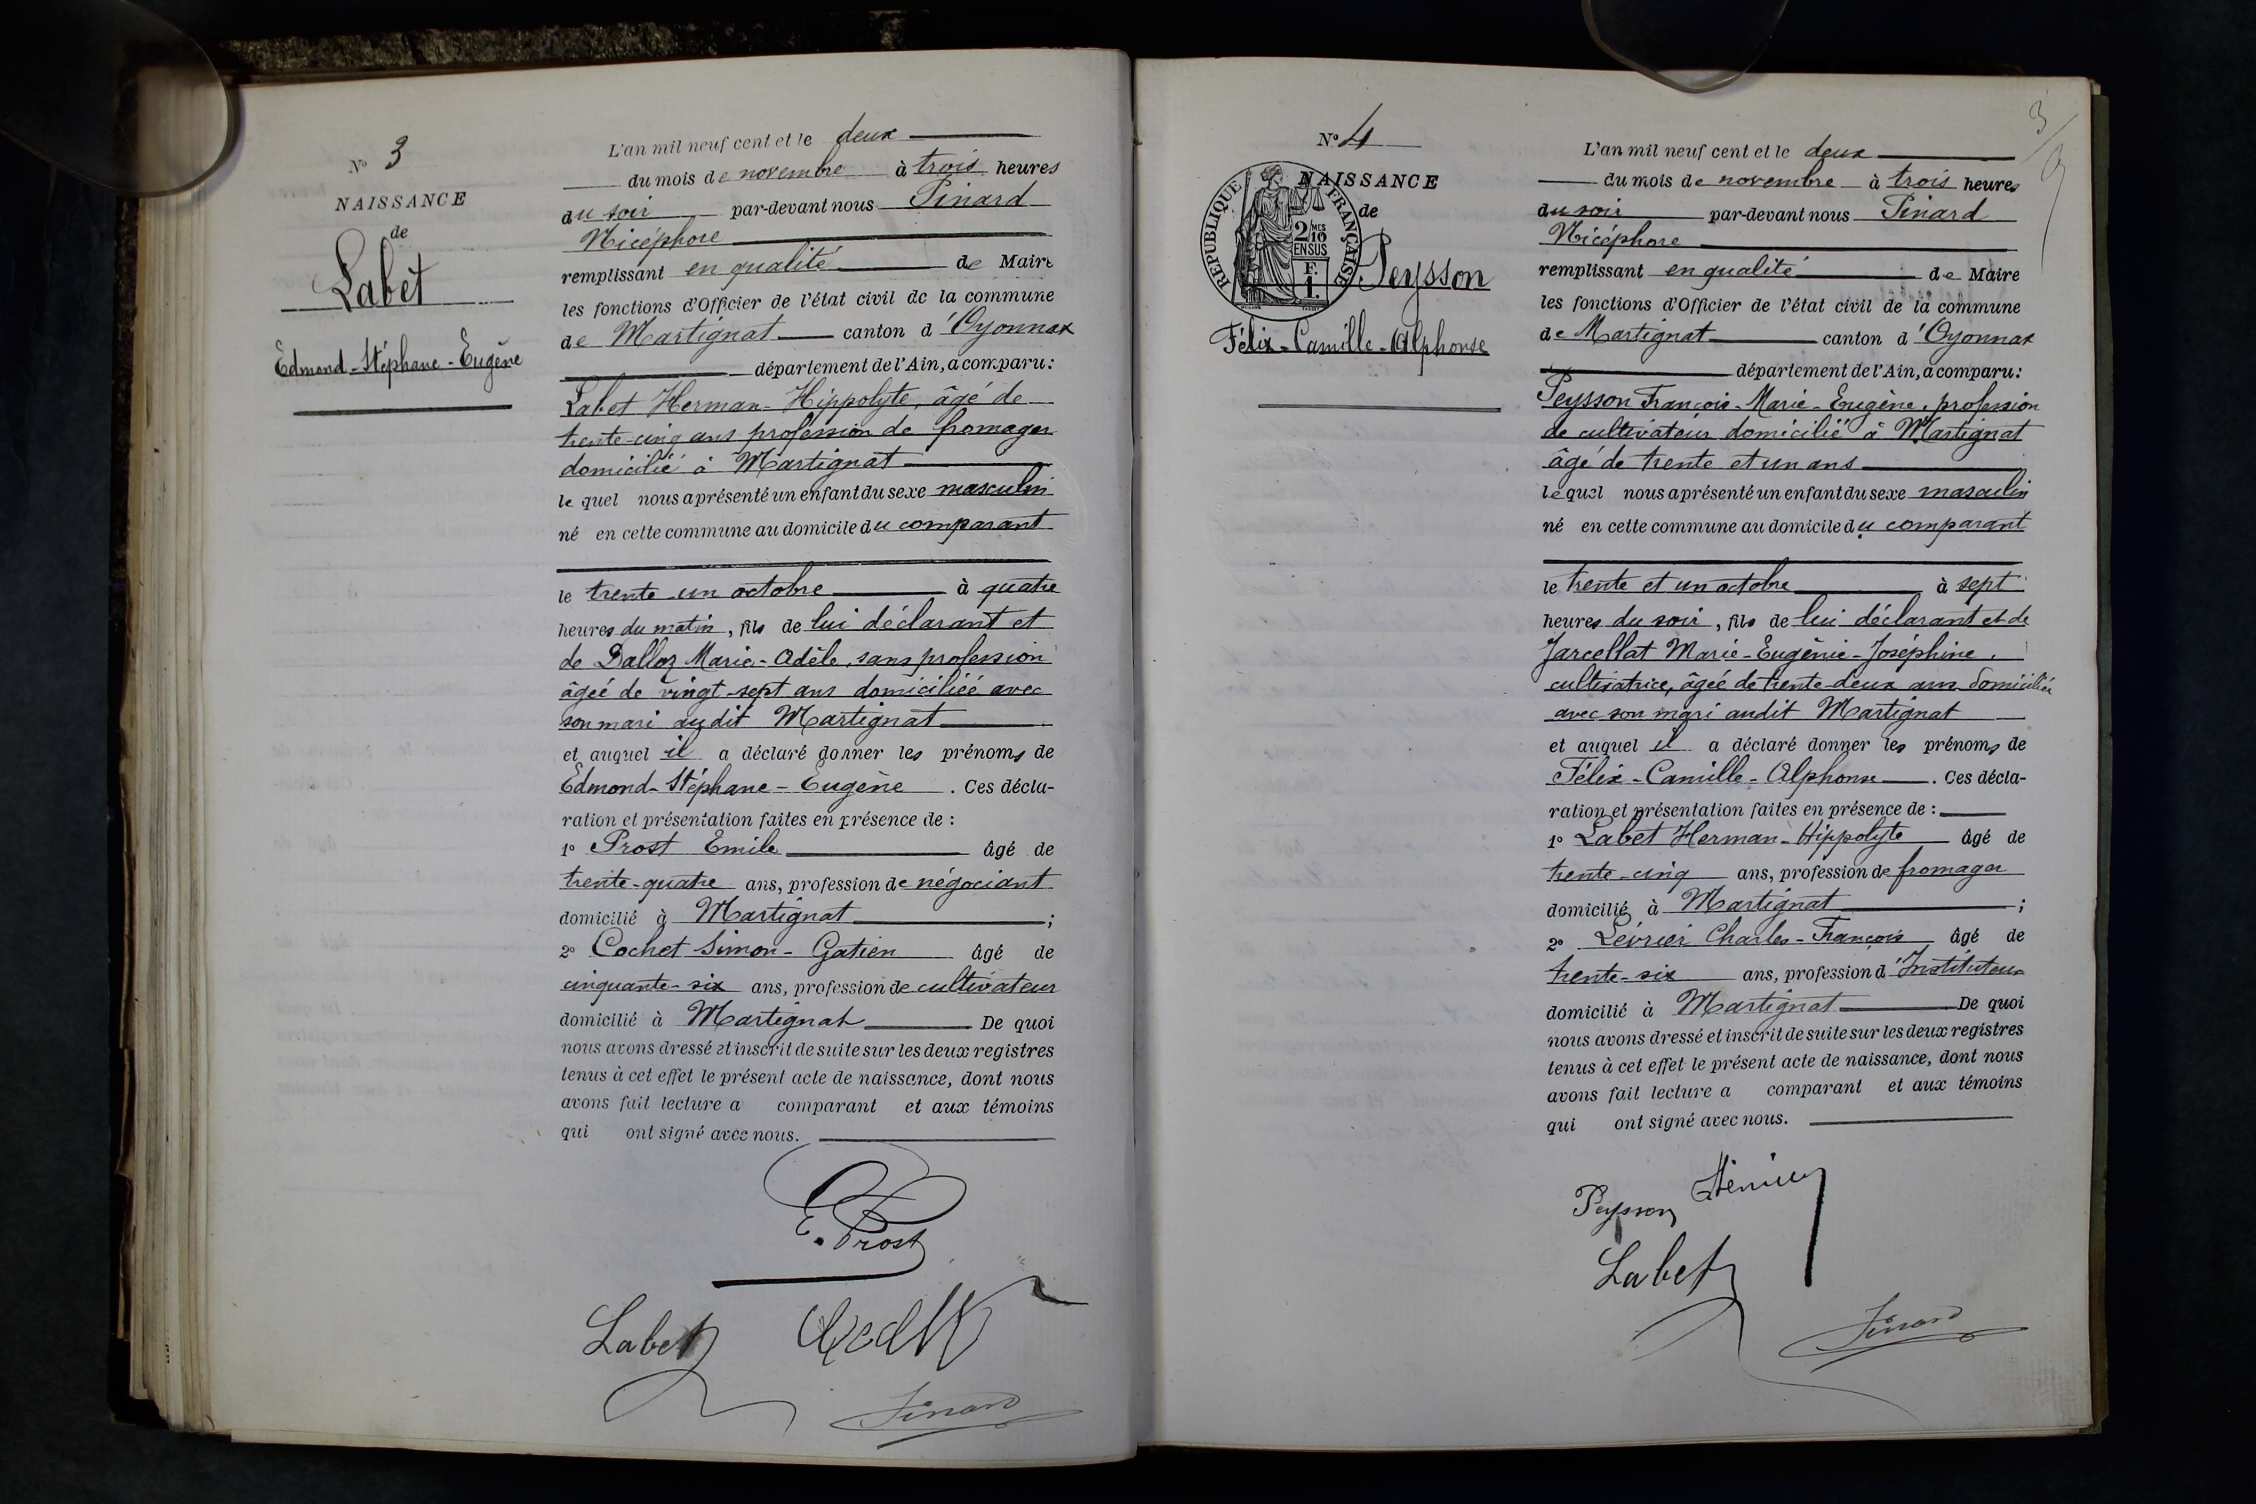 Nº 3
NAISSANCE
de
Labet
Edmond-Stéphane-Eugène
L'an mil neuf cent et le deux
du mois de novembre à trois heures
du soir par-devant nous Pinard
Nicéphore
remplissant en qualité de Maire
les fonctions d'Officier de l'état civil de la commune
de Martignat canton d'Oyonnax
département de l'Ain, a comparu:
Labet Herman-Hippolyte, âgé de
trente-cinq ans profession de fromager
domicilié à Martignat
le quel nous a présenté un enfant du sexe masculin
né en cette commune au domicile du comparant
le trente un octobre à quatre
heures du matin, fils de lui déclarant et
de Dalloz Marie-Adèle, sans profession
âgée de vingt-sept ans domiciliée avec
son mari audit Martignat
et auquel il a déclaré donner les prénoms de
Edmond-Stéphane-Eugène. Ces décla-
ration et présentation faites en présence de :
1º Prost Emile âgé de
trente-quatre ans, profession de négociant
domicilié à Martignat ;
2º Cochet Simon-Gatien âgé de
cinquante-six ans, profession de cultivateur
domicilié à Martignat De quoi
nous avons dressé et inscrit de suite sur les deux registres
tenus à cet effet le présent acte de naissance, dont nous
avons fait lecture a comparant et aux témoins
qui ont signé avec nous.
E. Prost
Labet
Pinard
3
Nº 4
NAISSANCE
de
RÉPUBLIQUE FRANÇAISE
2/10 MES
EN SUS
F.
1.
Peysson
Félix-Camille-Alphonse
L'an mil neuf cent et le deux
du mois de novembre à trois heures
du soir par-devant nous Pinard
Nicéphore
remplissant en qualité de Maire
les fonctions d'Officier de l'état civil de la commune
de Martignat canton d'Oyonnax
département de l'Ain, a comparu:
Peysson François-Marie-Eugène, profession
de cultivateur domicilié à Martignat
âgé de trente et un ans
le quel nous a présenté un enfant du sexe masculin
né en cette commune au domicile du comparant
le trente et un octobre à sept
heures du soir, fils de lui déclarant et de
Jarcellat Marie-Eugénie-Joséphine,
cultivatrice, âgée de trente-deux ans domiciliée
avec son mari audit Martignat
et auquel il a déclaré donner les prénoms de
Félix-Camille-Alphonse. Ces décla-
ration et présentation faites en présence de :
1º Labet Herman-Hippolyte âgé de
trente-cinq ans, profession de fromager
domicilié à Martignat ;
2º Lévrier Charles-François âgé de
trente-six ans, profession d'Instituteur
domicilié à Martignat De quoi
nous avons dressé et inscrit de suite sur les deux registres
tenus à cet effet le présent acte de naissance, dont nous
avons fait lecture a comparant et aux témoins
qui ont signé avec nous.
Peysson
Labet
Pinard